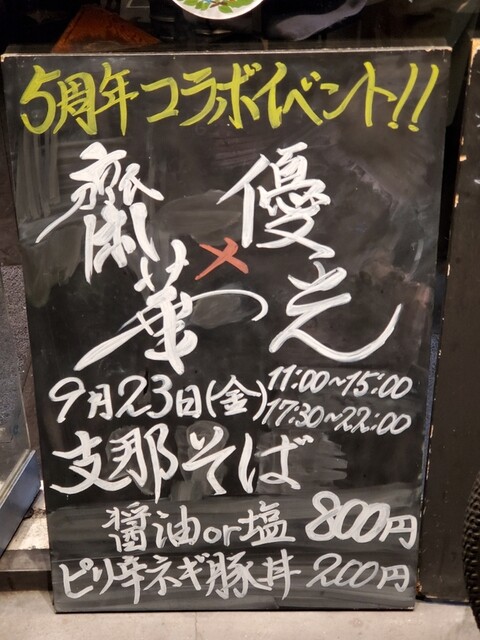 5周年コラボイベント!!
優光
×
齋華
9月23日(金) 11:00~15:00
17:30~22:00
支那そば
醤油or塩 800円
ピリ辛ネギ豚丼 200円